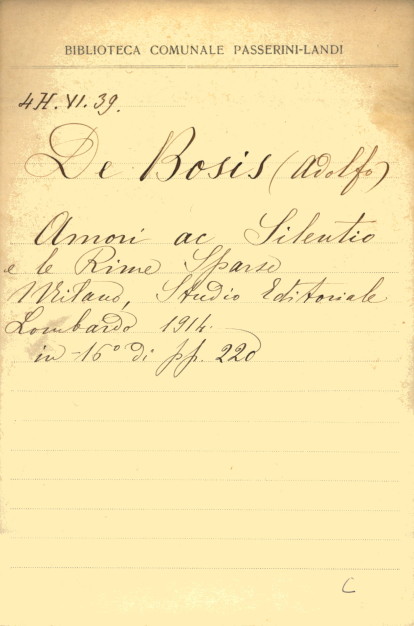 BIBLIOTECA COMUNALE PASSERINI-LANDI
4H. VI. 39.
De Bosis (Adolfo)
Amori ac Silentio
e le Rime Sparse
Milano, Studio Editoriale
Lombardo 1914.
in-16° di pp. 220
C